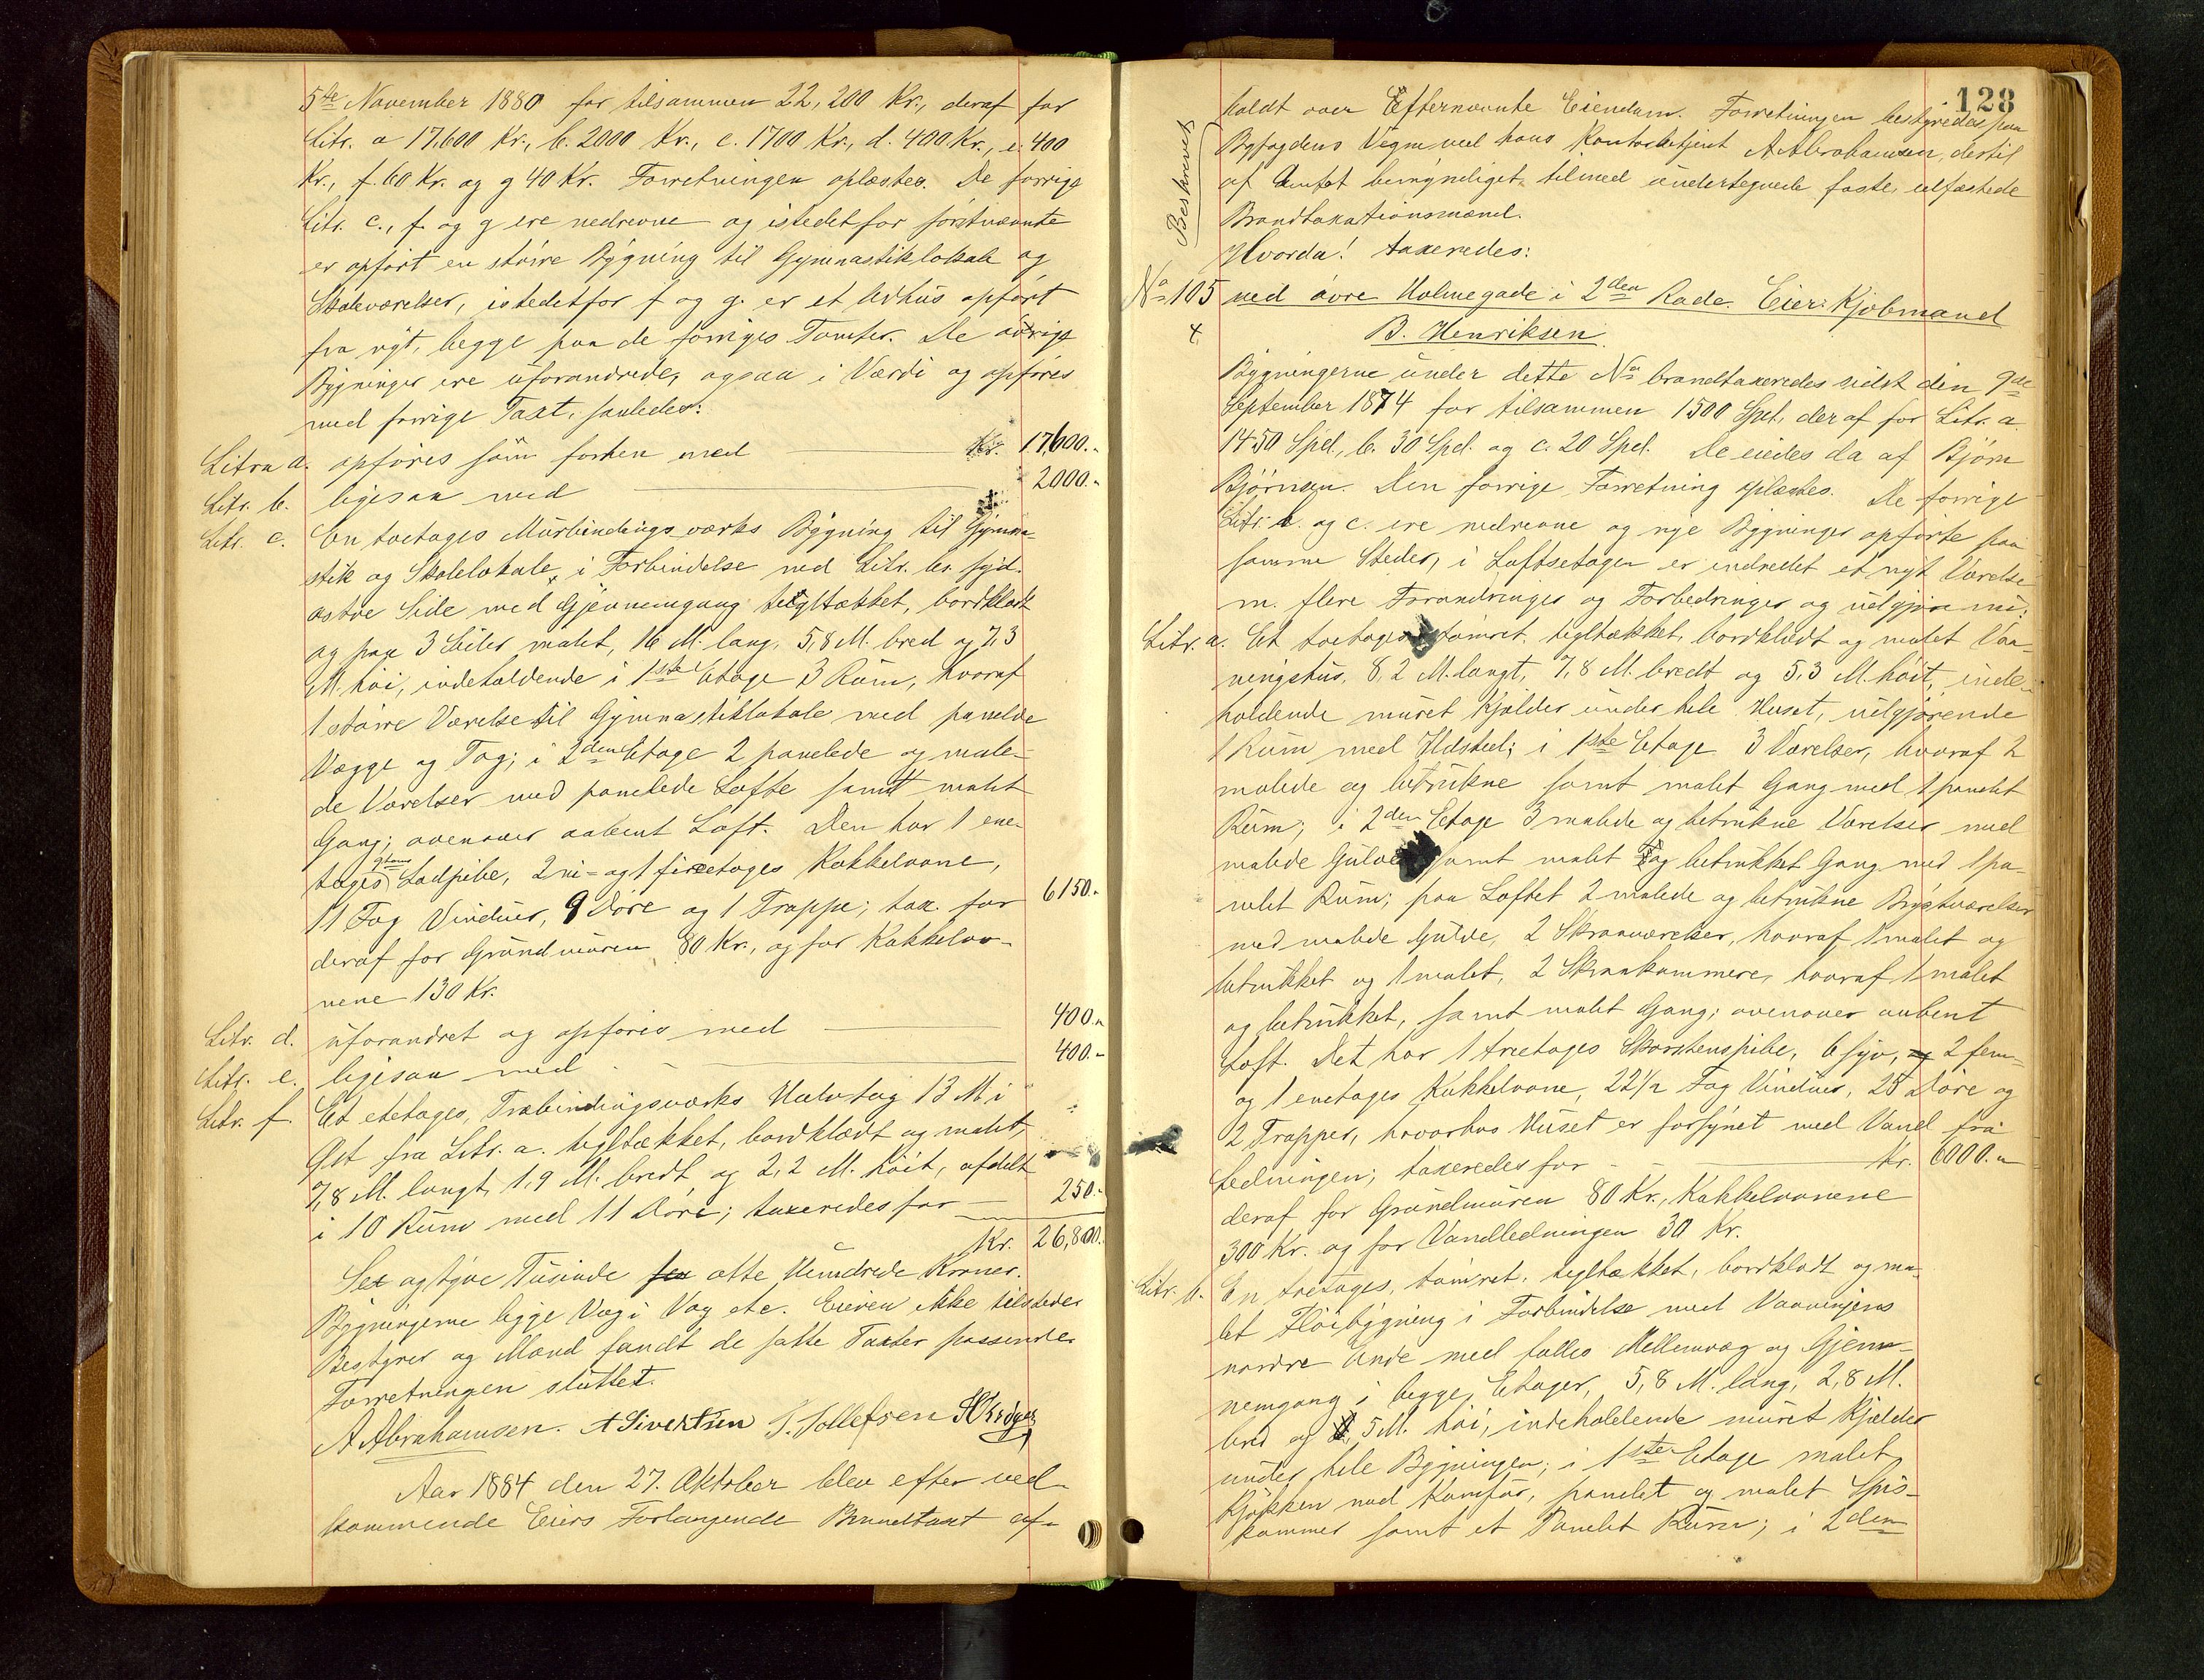 5te November 1880 for tilsammen 22,200 Kr., deraf for
Litr. a 17,600 Kr., b. 2000 Kr., c. 1700 Kr., d. 400 Kr., e. 400
Kr., f. 60 Kr. og g 40 Kr. Forretningen oplæstes. De forrige
Litr. c., f. og g ere nedrevne og istedetfor førstnævnte
er opført en større Bygning til Gymnastiklokale og
Skoleværelser, istedetfor f og g. er et Udhus opført
fra nyt, begge paa de forriges Tomter. De øvrige
Bygninger ere uforandrede, ogsaa i Værdi og opføres
med forrige Taxt, saaledes:
Litra a. opføres som forhen med Kr. 17,600.-
Litr. b. ligesaa med 2000.-
Litr. c. En toetages Murbindingsværks Bygning til Gymna-
stik og Skolelokale, i Forbindelse med Litr. bs syd-
østre Side med Gjennemgang tegltækket, bordklædt
og paa 3 Sider malet, 16 M. lang, 5,8 M. bred og 7,3
M. høi, indeholdende i 1ste Etage 3 Rum, hvoraf
1 større Værelse til Gymnastiklokale med panelde
Vægge og Tag; i 2den Etage 2 panelede og male-
de Værelser med panelede Lofte samt malet
Gang; ovenover aabent Loft. Den har 1 ene-
tages Lodpibe, 2 ni- og 1 fireetages Kakkelovne,
11 Fag Vinduer, 9 Døre og 1 Trappe; tax. for 6150.-
deraf for Grundmuren 80 Kr., og for Kakkelov-
nene 130 Kr.
Litr. d. uforandret og opføres med 400.-
Litr. e. ligesaa med 400.-
Litr. f. Et etetages, Træbindingsværks Halvtag 13 M. i
Øst fra Litr. a. tegltækket, bordklædt og malet,
7,8 M. langt, 1,9 M. bredt og 2,2 M. høit, afdelt
i 10 Rum med 11 Døre; taxeredes for 250.-
Kr. 26,800.
Sex og tyve Tusinde sex otte Hundrede Kroner.
Bygningerne ligge Væg i Væg etc. Eieren ikke tilstede.
Bestyrer og Mænd fandt de satte Taxter passende.
Forretningen sluttet.
A Abrahamsen. A Sivertsen T. Tollefsen
Aar 1884 den 27. Oktober blev efter ved-
kommende Eiers Forlangende Brandtaxt af-
128
Beskrevet
holdt over Efternævnte Eiendom. Forretningen bestyredes paa
Byfogdens Vegne ved hans Kontorbetjent A Abrahamsen, dertil
af Amtet bemyndiget, tilmed undertegnede faste, edfæstede
Brandtaxationsmænd.
Hvorda! taxeredes:
No 105 ved øvre Holmegade i 2den Rode. Eier: Kjøbmand
4 B. Henriksen.
Bygningerne under dette No brandtaxeredes sidst den 9de
September 1874 for tilsammen 1500 Spd., deraf for Litr. a.
1450 Spd., b. 30 Spd. og c. 20 Spd. De eiedes da af Bjørn
Bjørnsen. Den forrige Forretning oplæstes. De forrige
Litr. b. og c. ere nedrevne og nye Bygninger opførte paa
samme Steder, i Loftsetagen er indredet et nyt Værelse
m. flere Forandringer og Forbedringer og udgjøre nu:
Litr. a. Et toetages, tømret, tegltækket, bordklædt og malet Vaa-
ningshus, 8,2 M. langt, 7,8 M. bredt og 5,3 M. høit, inde-
holdende muret Kjelder under hele Huset, udgjørende
1 Rum med Ildsted; i 1ste Etage 3 Værelser, hvoraf 2
malede og betrukne samt malet Gang med 1 panelet
Rum; i 2den Etage 3 malede og betrukne Værelser med
malede Gulve samt malet og betrukket Gang med 1 pa-
nelet Rum; paa Loftet 2 malede og betrukne Brystværelser
med malede Gulve, 2 Skraaværelser, hvoraf 1 malet og
betrukket og 1 malet, 2 Skraakammere, hvoraf 1 malet
og betrukket, samt malet Gang; ovenover aabent
Loft. Det har 1 treetages Skorstenspibe, 6 syv, 2 fem-
og 1 enetages Kakkelovne, 22 1/2 Fag Vinduer, 25 Døre og
2 Trapper, hvorhos Huset er forsynet med Vand fra
Ledningen; taxeredes for Kr. 6000.-
deraf for Grundmuren 80 Kr., Kakkelovnene
300 Kr. og for Vandledningen 30 Kr.
Litr. b. En tretages, tømret, tegltækket, bordklædt og ma-
let Fløibygning i Forbindelse med Vaaningens
nordre Ende med fælles Mellemvæg og Gjen-
nemgang i begge Etager, 5,8 M. lang, 2,8 M.
bred og 5 M. høi, indeholdende muret Kjælder
under hele Bygningen; i 1ste Etage malet
Kjøkken med Komfur, panelet og malet Spis-
kammer samt et Panelet Rum; i 2den